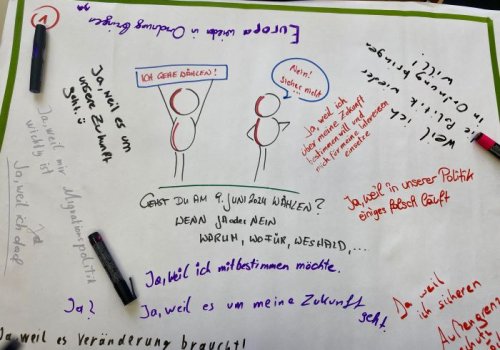 Europa wieder in Ordnung bringen
Ja
ICH GEHE WÄHLEN!
Nein!
Sicher nicht
...
Ja, weil es um
unsere Zukunft
geht
weil ich
die Politik wieder
in Ordnung bringen
will!
Ja, weil ich
über meine Zukunft
bestimmen will und
nicht für meine Interessen
einsetze
Ja, weil mir
wichtig ist
Migrationspolitik
Ja
Ja, weil ich darf
Ja, weil in unserer Politik
einiges falsch läuft
GEHST DU AM 9. JUNI 2024 WÄHLEN?
WENN JA ODER NEIN
WARUM, WOFÜR, WESHALB, ...
Ja, weil ich mitbestimmen möchte.
Ja?
Ja, weil es um meine Zukunft
geht
Ja weil
ich sicheren
Außengrenz
Ja weil es Veränderung braucht!